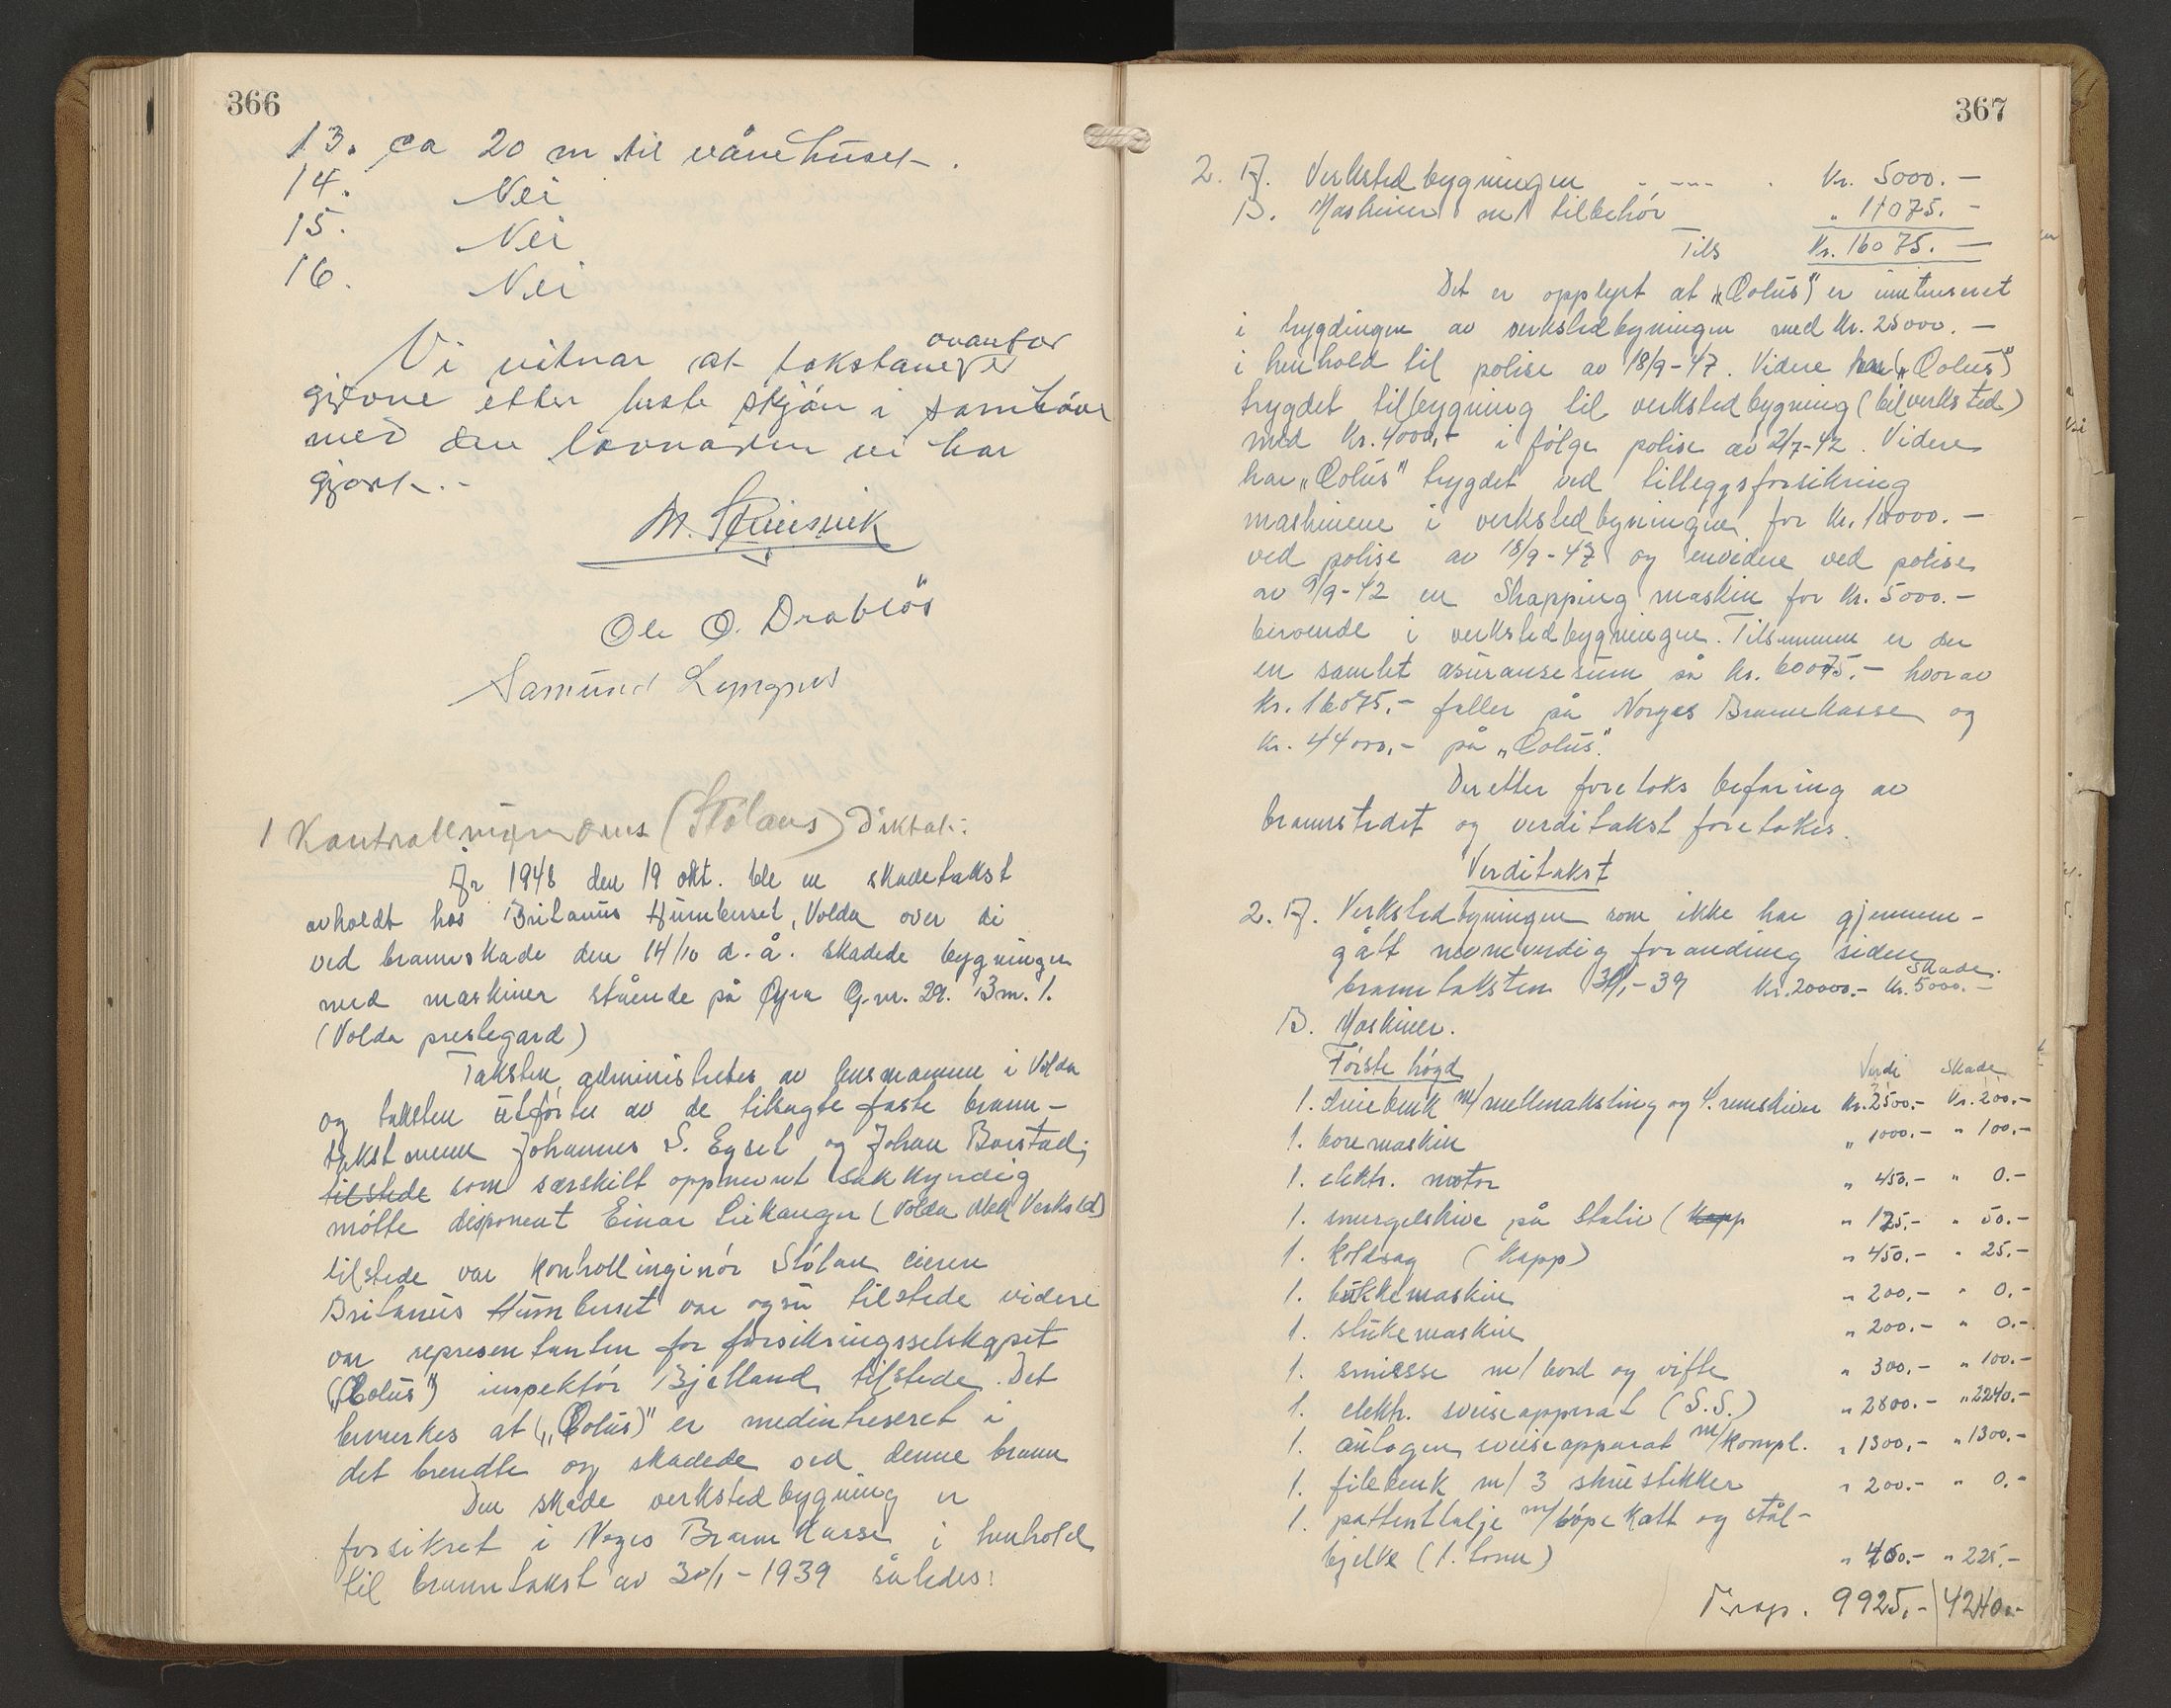 366
13. ca 20 m til våne huset.
14. Nei
15. Nei
16. Nei
ovanfor
Vi vitnar at takstane er
gjevne etter beste skjön i samhöve
med den lovnaden vi har
gjort.-
M. Steinsvik
Ole O. Drabløs
Samund Lyngnes
1 Kontrollingeniørens (Stölans) Diktat:
År 1948 den 19 okt. ble en skadetakst
avholdt hos Britanus Humberset, Volda over de
ved brannskade den 14/10 d.å. skadede bygninger
med maskiner stående på Øyra G.nr. 29. B.nr. 1.
(Volda prestegard)
Taksten administretes av lensmannen i Volda
og taksten utförtes av de tilkagte faste brann-
takstmenn Johannes S. Egset og Johan Barstad;
tilstede som særskilt oppnevnt sakkyndig
mötte disponent Einar Leikanger (Volda Mek Verksted)
tilstede var kontrollinginör Stölan eieren
Britanus Humberset var også tilstede videre
var representanten for forsikringsselskapet
("Eolus") inspektör Bjelland tilstede. Det
bemerkes at („Eolus)" er medintreseret i
det brendte og skadede ved denne brann
Den skade verkstedbygning er
forsikret i Noges Brann Kasse i henhold
til branntakst av 30/1-1939 således:
367
2. A. Verkstedbygningen - . --- . Kr. 5000.-
B. Maskiner m/ tilbehör „ 11075.-
Tils Kr. 16075.-
Det er opplyst at („Eolus") er intreseret
i trygdingen av verkstedbyningen med Kr. 25000.-
i henhold til polise av 18/9-47. Videre har („Eolus")
trygdet tilbygning til verkstedbygning (bilverksted)
med Kr. 4000,- i fölge polise av 2/7-42. Videre
har „Eolus" trygdet ved tilleggsforsikring
maskinene i verkstedbyningen for Kr. 10000.-
ved polise av 18/9-47 og envidere ved polise
av 9/9-42 en Shapping maskin for Kr. 5000.-
beroende i verkstedbygningen. Tilsammen er der
en samlet asuransesum på Kr. 60075.- hvorav
Kr. 16075.- faller på Norges Brannkasse og
Kr. 44000,- på „Eolus".
Deretter foretoks befaring av
brannstedet og verditakst foretokes.
Verditakst
2. A. Verkstedbyningen som ikke har gjennem-
gått nevneverdig forandring siden
Skade.
branntaksten 30/1-39 Kr. 20000.- Kr. 5000.-
B. Maskiner.
Förste högd Verdi Skade
1. dreiebenk m/ mellemaksling og 4. remskiver Kr. 2500.- Kr. 200.-
1. boremaskin „ 1000.- „ 100.-
1. elektr. motor „ 450.- „ 0.-
1. smergelskive på Stativ (Kapp „ 125,- „ 50.-
1. Koldsag (Kapp) „ 450.- „ 25.-
1. bukkemaskin „ 200.- „ 0.-
1. stukemaskin „ 200.- „ 0.-
1. smiesse m/ bord og vifte „ 300.- „ 100.-
1. elektr. sveiseapparat (S.S.) „ 2800.- „ 2240.-
1. autogen sveiseapparat m/kompl. „ 1300,- „ 1300.-
1. filebenk m/ 3 skrustikker „ 200.- „ 0.-
1. pattenttalje m/ löpe Katt og stål-
bjelke (1. tonn) „ 400.- „ 225.-
Trsp. 9925,- 4240.-